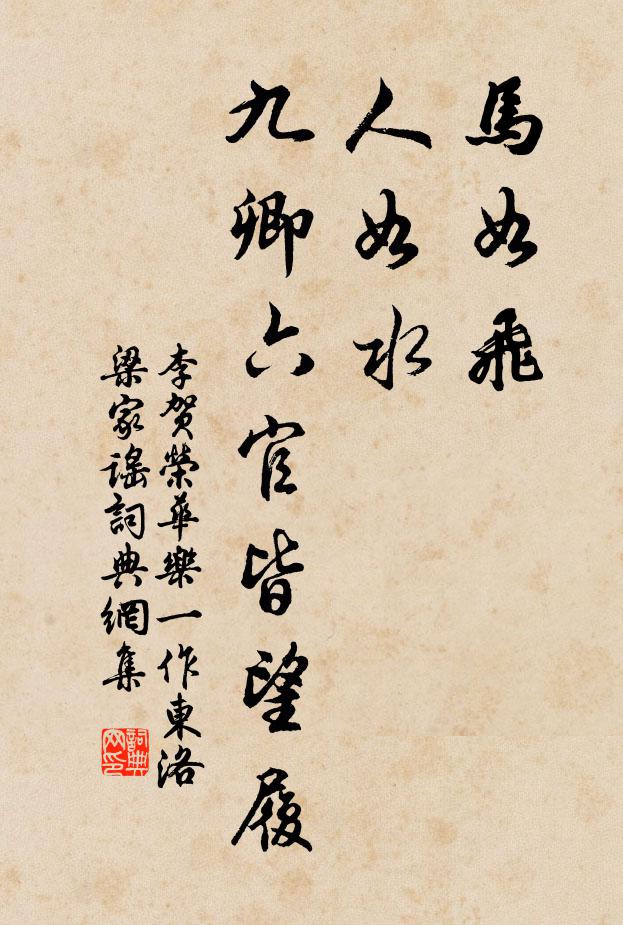 馬如飛
人如水
九卿六官皆望履
李賀榮華樂一作東洛
梁家謠詞典網集
詞典
网印